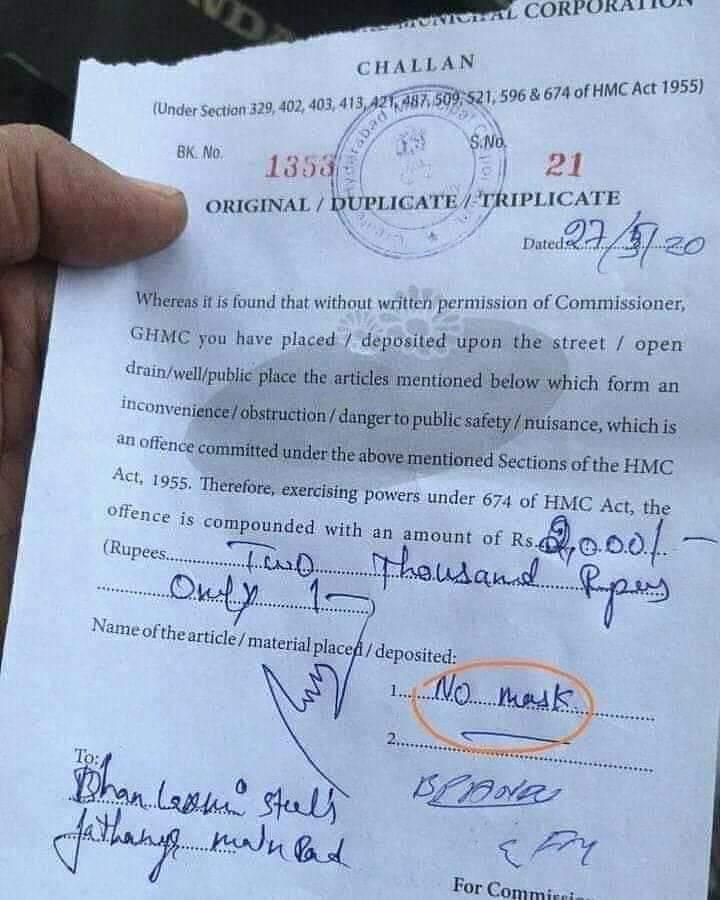 MUNICIPAL CORPORATION
CHALLAN
(Under Section 329, 402, 403, 413, 421, 487, 509, 521, 596 & 674 of HMC Act 1955)
BK. No. 1353 S.No. 21
ORIGINAL / DUPLICATE / TRIPLICATE
Dated 27/5/20
Whereas it is found that without written permission of Commissioner,
GHMC you have placed / deposited upon the street / open
drain/well/public place the articles mentioned below which form an
inconvenience / obstruction / danger to public safety / nuisance, which is
an offence committed under the above mentioned Sections of the HMC
Act, 1955. Therefore, exercising powers under 674 of HMC Act, the
offence is compounded with an amount of Rs. 2,000/-
(Rupees Two Thousand Rpees
Only /-)
Name of the article / material placed / deposited:
1. No mask
2.
To:
Dhan Laxmi Steels
main Road
For Commissio